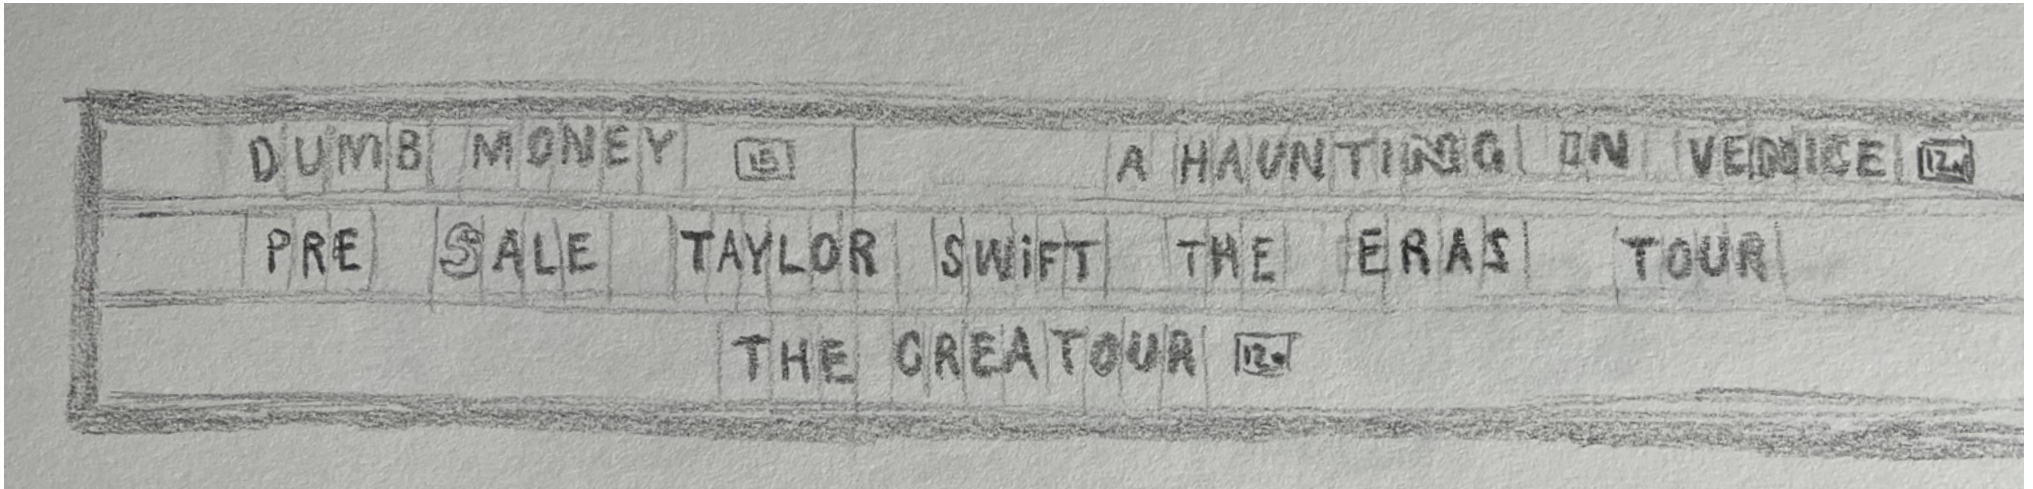 DUMB MONEY 15 A HAUNTING IN VENICE 12A
PRE SALE TAYLOR SWIFT THE ERAS TOUR
THE CREATOUR 12A